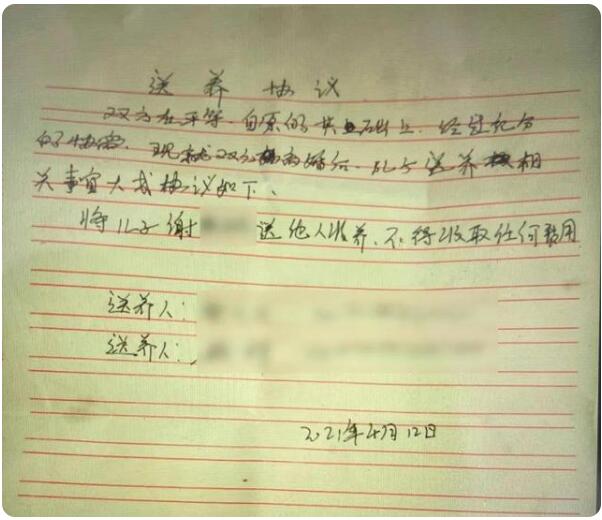 送养协议
双方在平等、自原的共础上，经过充分
的协商，现就双方离婚后，儿子送养相
关事宜大成协议如下、
将儿子谢 送他人收养、不得收取任何费用
送养人：
送养人：
2021年4月12日